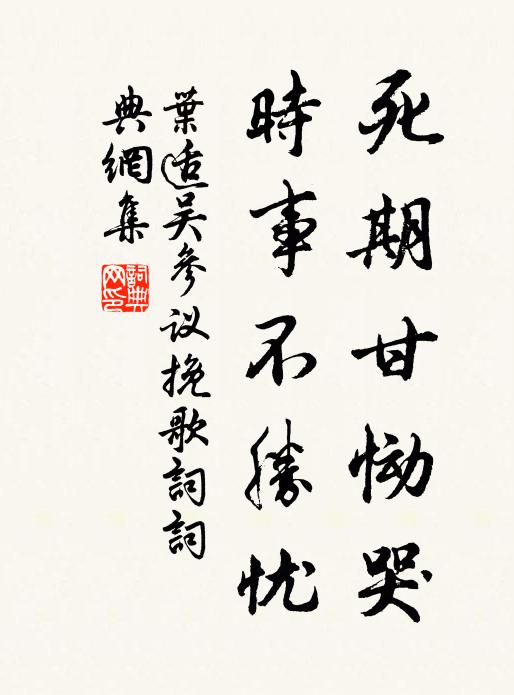 死期甘恸哭
時事不勝忧
葉适吴參议挽歌詞詞
典網集
詞典网印